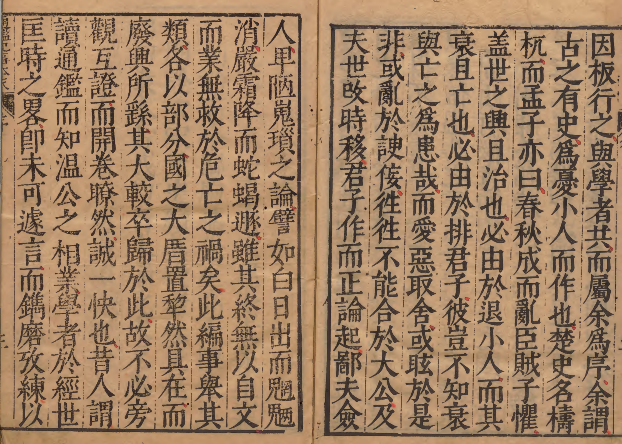 因板行之與學者共而屬余爲序余謂
古之有史爲憂小人而作也楚史名檮
杌而孟子亦曰春秋成而亂臣賊子懼
盖世之興且治也必由於退小人而其
衰且亡也必由於排君子彼豈不知衰
與亡之爲患哉而愛惡取舍或眩於是
非或亂於諛佞徃徃不能合於大公及
夫世攺時移君子作而正論起鄙夫僉
人卑陋嵬瑣之論譬如白日出而魍魎
消嚴霜降而蛇蝎遯雖其終無以自文
而業無救於危亡之禍矣此編事舉其
類各以部分國之大厝置犂然具在而
廢興所繇其大較卒歸於此故不必旁
觀互證而開卷瞭然誠一快也昔人謂
讀通鑑而知温公之相業學者於經世
匡時之畧卽未可遽言而鐫磨攷練以